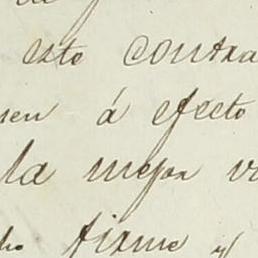 este contra
sen á efecto
la mejor v
firme y